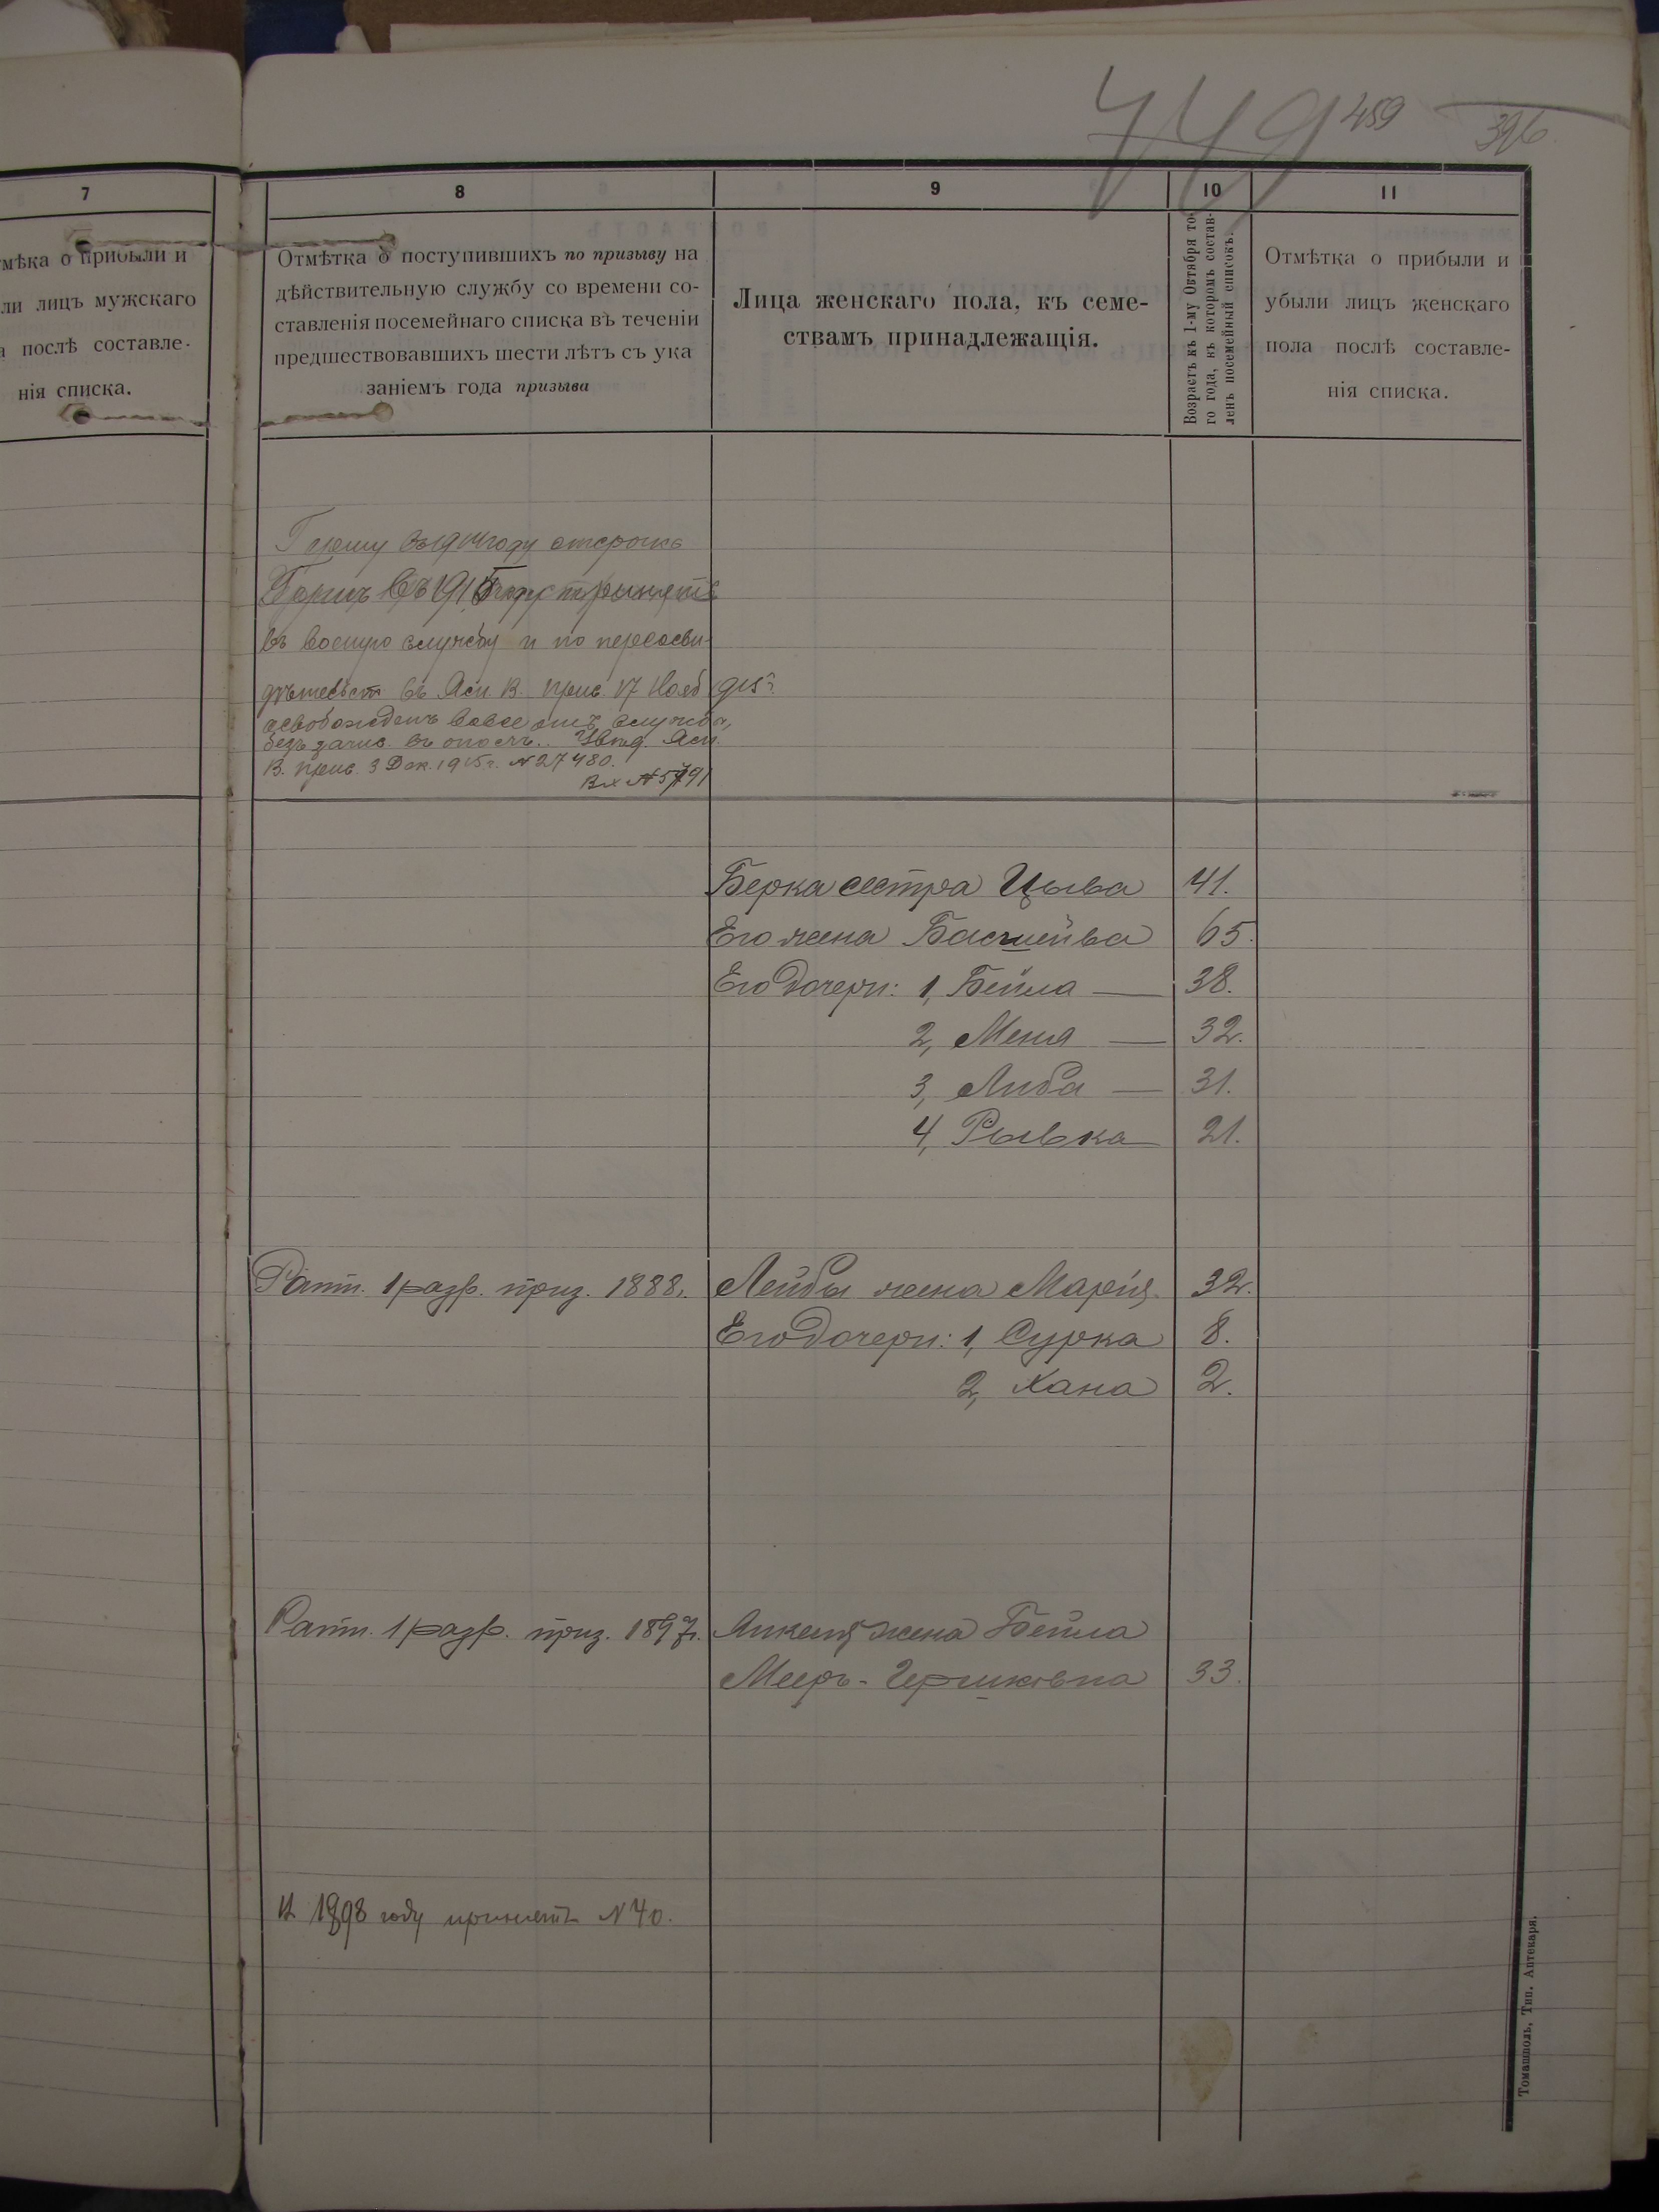 449 459 396
7
8
9
10
11
мѣка о прибыли и
ли лицъ мужскаго
а послѣ составле-
нія списка.
Отмѣтка о поступившихъ по призыву на
дѣйствительную службу со времени со-
ставленія посемейнаго списка въ теченіи
предшествовавшихъ шести лѣтъ съ ука
заніемъ года призыва
Лица женскаго пола, къ семе-
ствамъ принадлежащія.
Возрастъ къ 1-му Октября то-
го года, къ которомъ состав-
ленъ посемейный списокъ.
Отмѣтка о прибыли и
убыли лицъ женскаго
пола послѣ составле-
нія списка.
году отсрочка
въ 1915 году принятъ
въ военную службу и по пересви-
дѣтельст въ Ясн. В. прис. 17 Нояб 915 г.
освобожденъ вовсе отъ службы,
безъ зачис. въ ополч. Увѣд. Ясн.
В. прис. 3 Дек. 1915 г. № 27480.
Вх №
Берка сестра Цыва 41.
Его жена Басшейва 65.
Его дочери: 1, Бейла — 38.
2, Меня — 32.
3, Либа — 31.
4, Рывка 21.
Ратн. 1 разр. приз. 1888 г. Лейбы жена Марія 32.
Его дочери: 1, Сурка 8.
2, Хана 2.
Ратн. 1 разр. приз. 1897 г. Янкеля жена Бейла
Мееръ-Гершковна 33.
1898 году принятъ № 40.
Томашполь, Тип. Аптекаря.